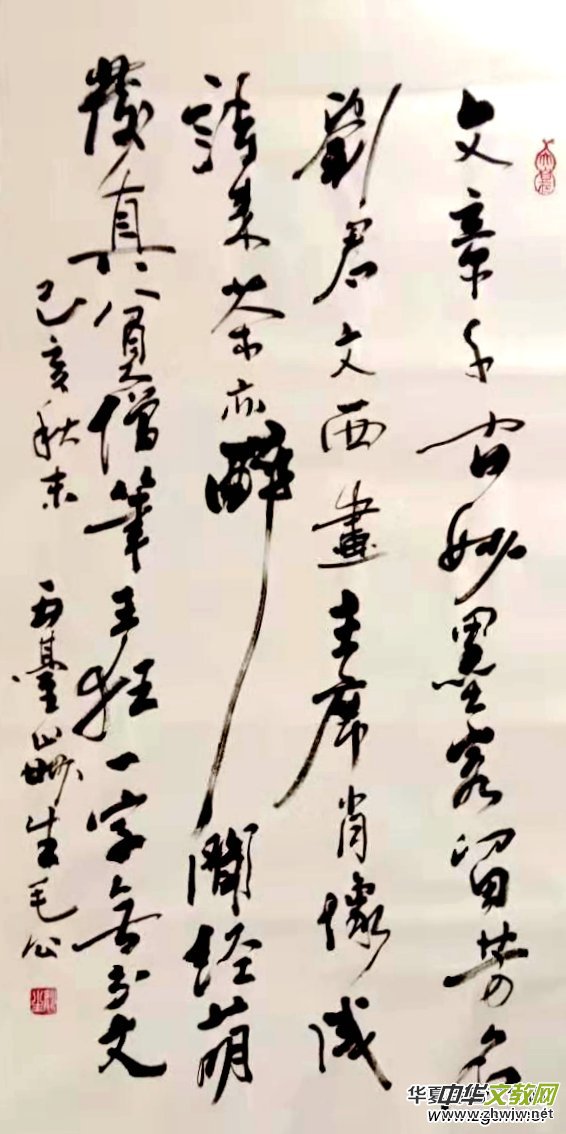 文章千古妙墨客留芳名
刘君文西画主席肖像成
请来茶亦醉闻经萌
发真貧僧笔主狂一字无分文
己亥秋末
生毛公
华夏
中华文教网
www.zhwjw.net